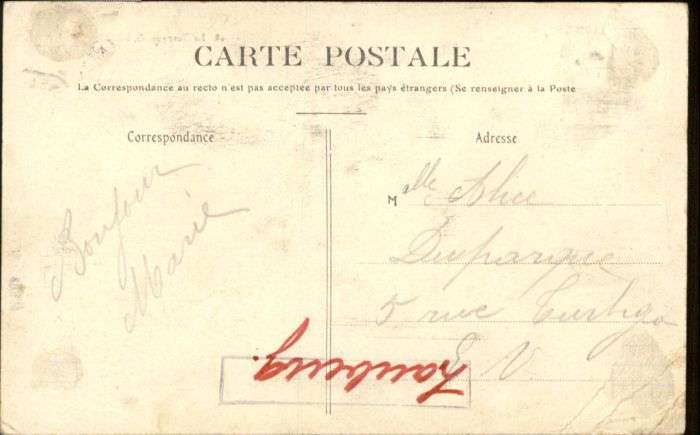 CARTE POSTALE
La Correspondance au recto n'est pas acceptée par tous les pays étrangers (Se renseigner à la Poste
Correspondance
Adresse
Bonjour
Marie
Mlle Alice
Duparque
5 rue
E. V.